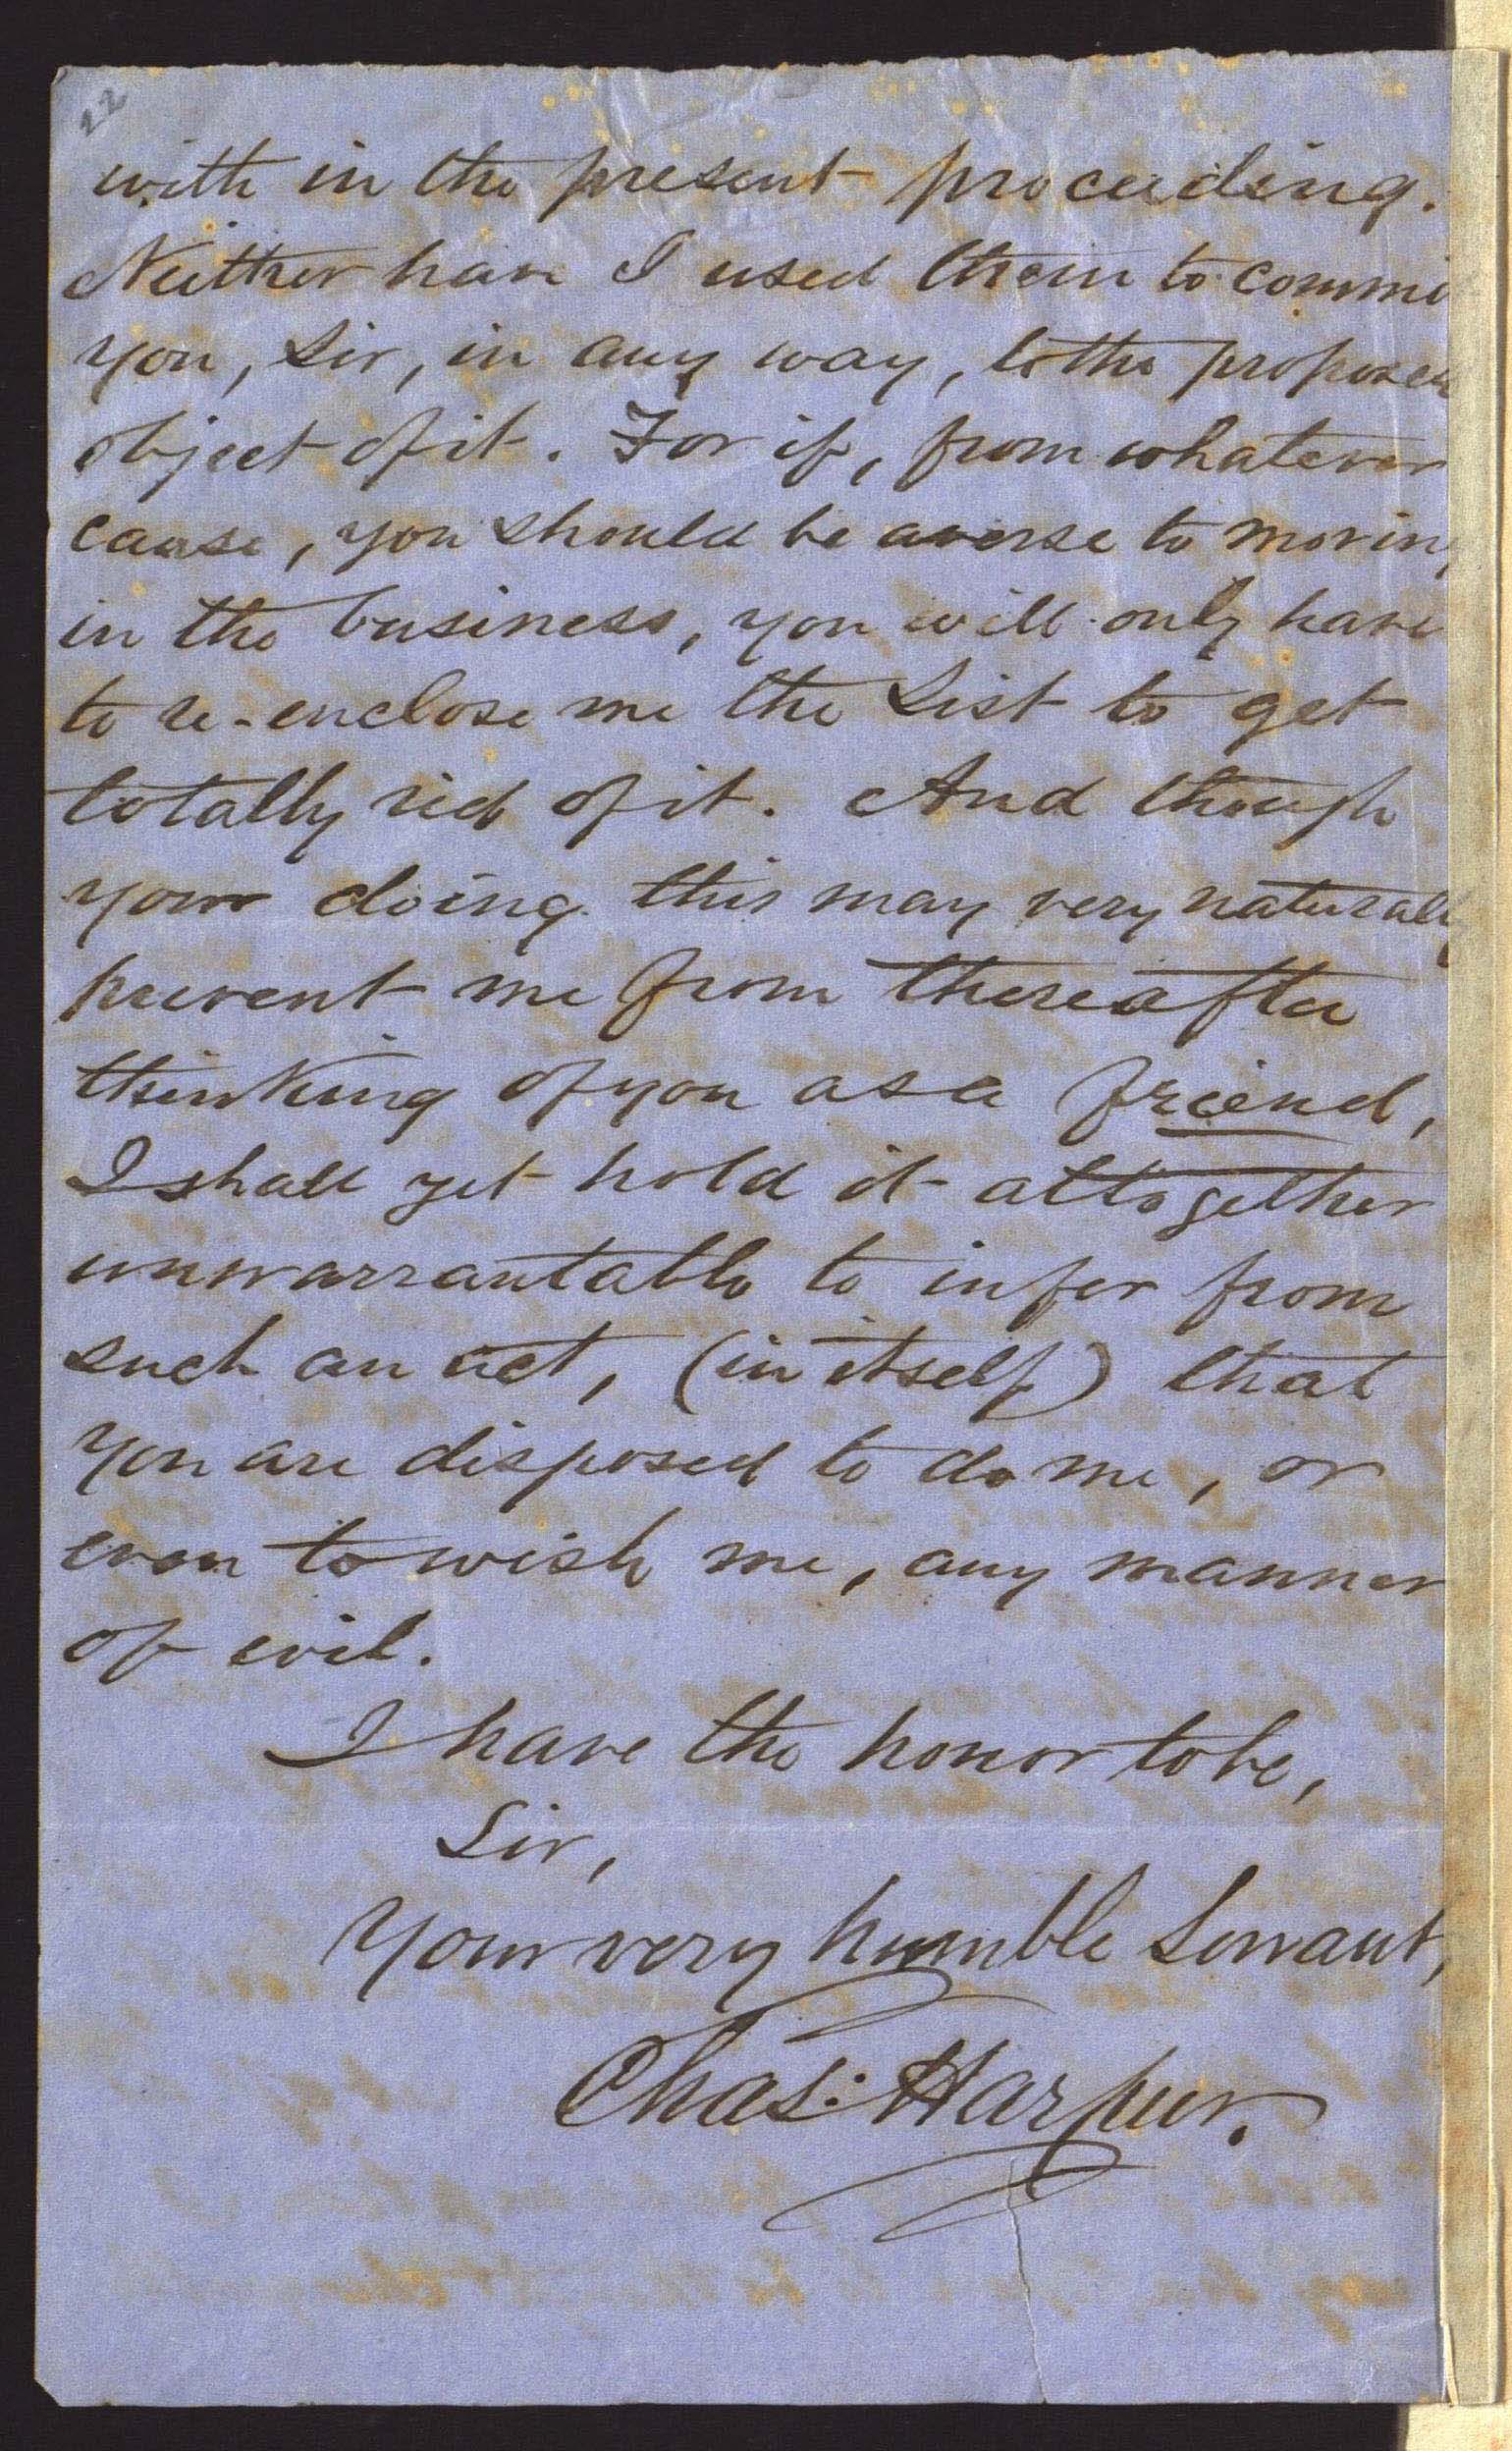 22
with in the present proceeding.
Neither have I used them to commi
you, Sir, in any way, to the proposed
object of it. For if, from whatever
cause, you should be averse to moving
in the business, you will only have
to re-enclose me the List to get
totally rid of it. And though
your doing this may very naturally
prevent me from thereafter
thinking of you as a friend,
I shall yet hold it altogether
unwarrantable to infer from
such an act, (in itself) that
you are disposed to do me, or
even to wish me, any manner
of evil.
I have the honor to be,
Sir,
Your very humble Servant,
Chas: Harpur.